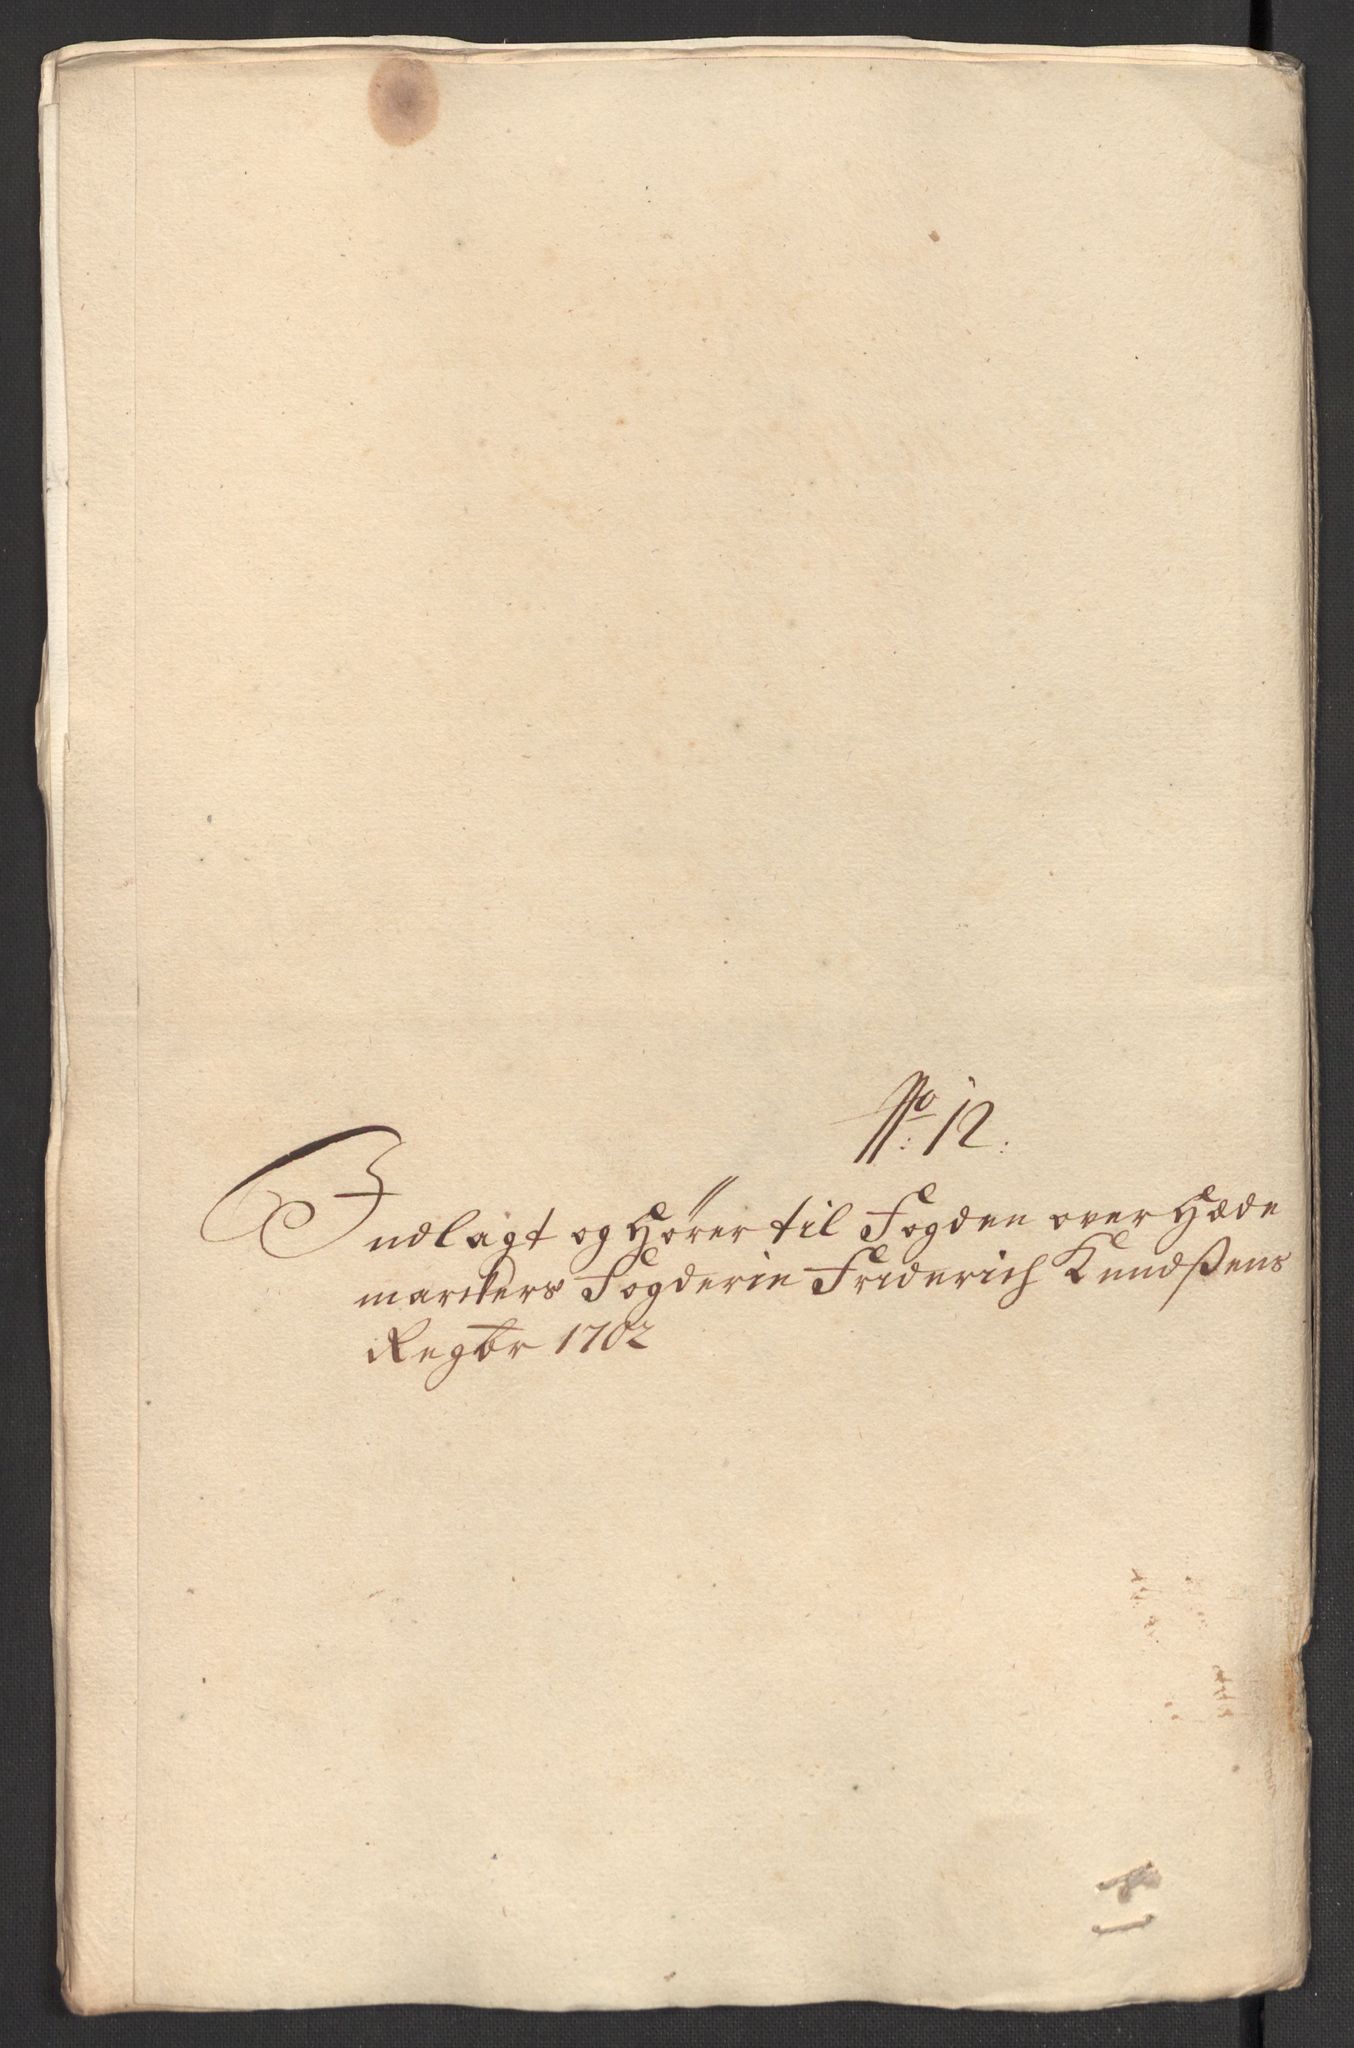 No: 12.
Indlagt og Hører til Fogden over Hede
markers Fogderie Friderich Knudsßens
Regbr 1702